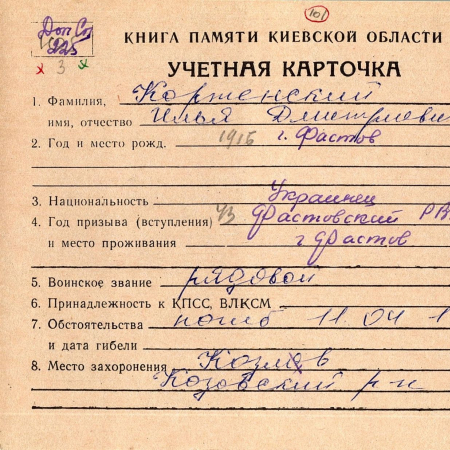 101
Доп Сп
225
3
КНИГА ПАМЯТИ КИЕВСКОЙ ОБЛАСТИ
УЧЕТНАЯ КАРТОЧКА
1. Фамилия, Корженский
имя, отчество Илья Дмитриеви
2. Год и место рожд. 1916 г. Фастов
3. Национальность Украинец
4. Год призыва (вступления) Фастовский РВ
и место проживания г Фастов
5. Воинское звание рядовой
6. Принадлежность к КПСС, ВЛКСМ
7. Обстоятельства погиб 11.04 1
и дата гибели
8. Место захоронения Козлов
Козовский р-н